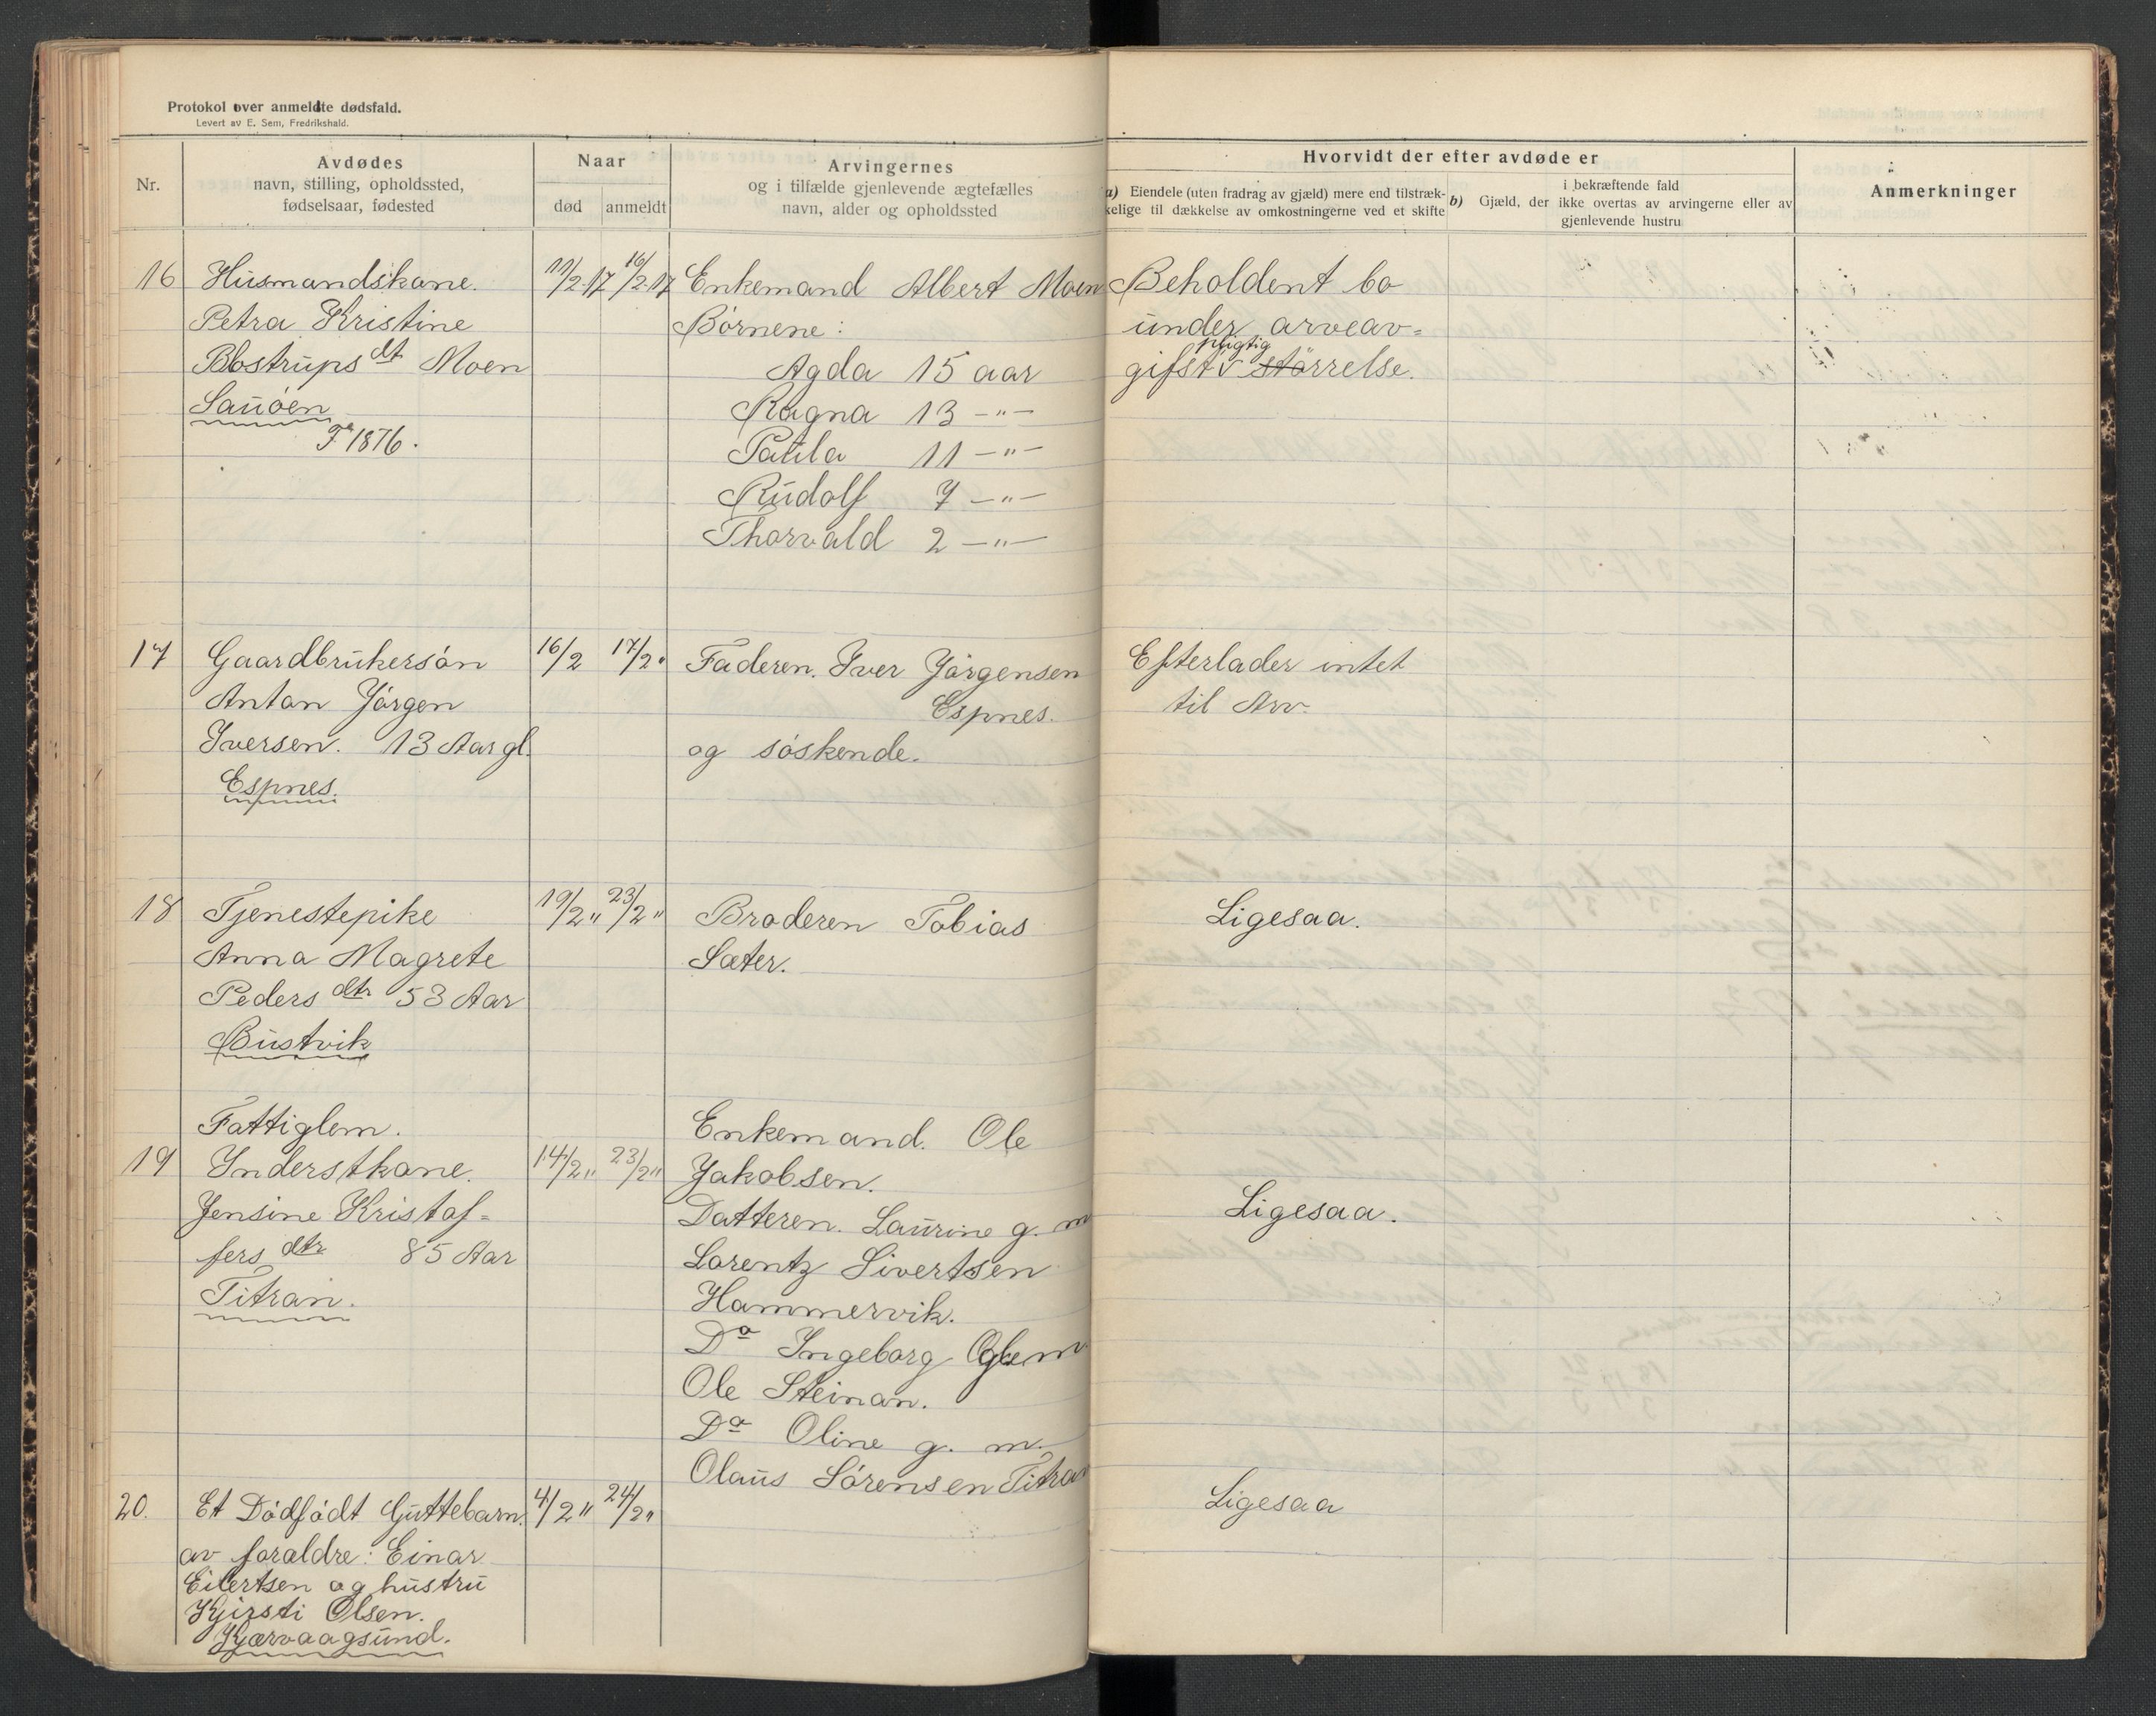 Protokol over anmeldte dødsfald.
Levert av E. Sem, Fredrikshald.
Nr.
Avdødes
navn, stilling, opholdssted,
fødselsaar, fødested
Naar
død
anmeldt
Arvingernes
og i tilfælde gjenlevende ægtefælles
navn, alder og opholdssted
Hvorvidt der efter avdøde er
a) Eiendele (uten fradrag av gjæld) mere end tilstræk-
kelige til dækkelse av omkostningerne ved et skifte
b) Gjæld, der
i bekræftende fald
ikke overtas av arvingerne eller av
gjenlevende hustru
Anmerkninger
16 Husmandskone. 11/2.17 16/2.17 Enkemand Albert Moen Beholdent bo
Petra Kristine Børnene: under arveav-
pligtig
Blostrups dt Moen Agda 15 aar gifst størrelse.
Sauøen Ragna 13 -"-
F 1876. Paula 11 -"-
Rudolf 7 -"-
Thorvald 2 -"-
17 Gaardbrukersøn 16/2 17/2" Faderen. Iver Jørgensen Efterlader intet
Anton Jørgen Espnes. til Arv.
Iversen. 13 Aar gl. og søskende.
Espnes.
18 Tjenestepike 19/2" 23/2" Broderen Tobias Ligesaa.
Anna Magrete Sæter.
Peders dtr 53 Aar
Bustvik
Fattiglem. Enkemand. Ole
19 Inderstkone. 14/2" 23/2" Jakobsen.
Jensine Kristof- Datteren. Laurine g. m Ligesaa.
fers dtr 85 Aar Lorentz Sivertsen
Titran. Hammervik.
Do Ingeborg g. m
Ole Steinan.
Do Oline g. m.
Olaus Sørensen Titran
20. Et Dødfødt Guttebarn. 4/2" 24/2" Ligesaa
av forældre: Einar
Eilertsen og hustru
Kjirsti Olsen.
Kjærvaagsund.